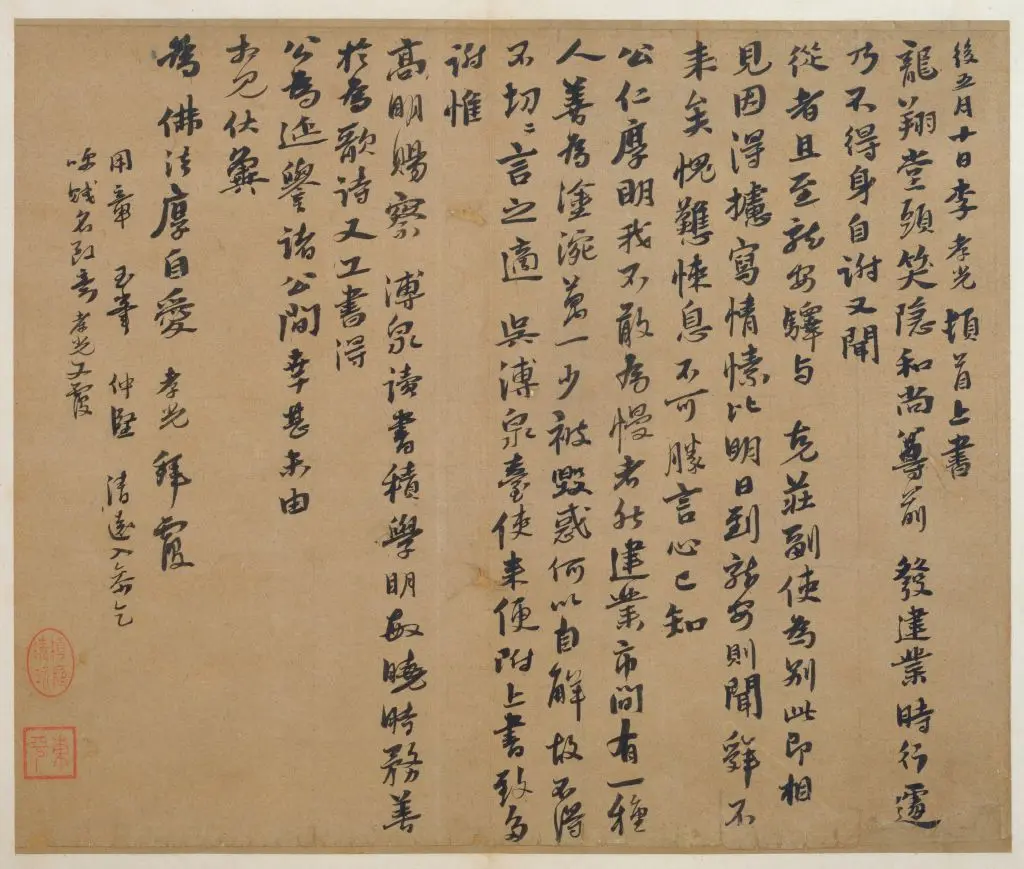 後五月十日李孝光頓首上書
龍翔堂頭笑隱和尚尊前 發建業時行遽
乃不得身自謝又聞
從者且至龍安驛與 克莊副使為別此即相
見因得攄寫情愫比明日到龍安則聞舜不
来矣愧難悚息不可勝言心已知
公仁厚明我不敢為慢者然建業市間有一種
人善為塗涴萬一少被毀惑何以自解故不得
不切〻言之適 吳溥泉臺使来便附上書致多
謝惟
高明賜察 溥泉讀書積學明敏曉時務善
於為歌詩又工書得
公為延譽諸公間幸甚未由
相見伏冀
為佛法厚自愛 孝光 拜覆
用章 玉峯 仲堅 清遠入希乞
呼賤名致意 孝光又覆
東